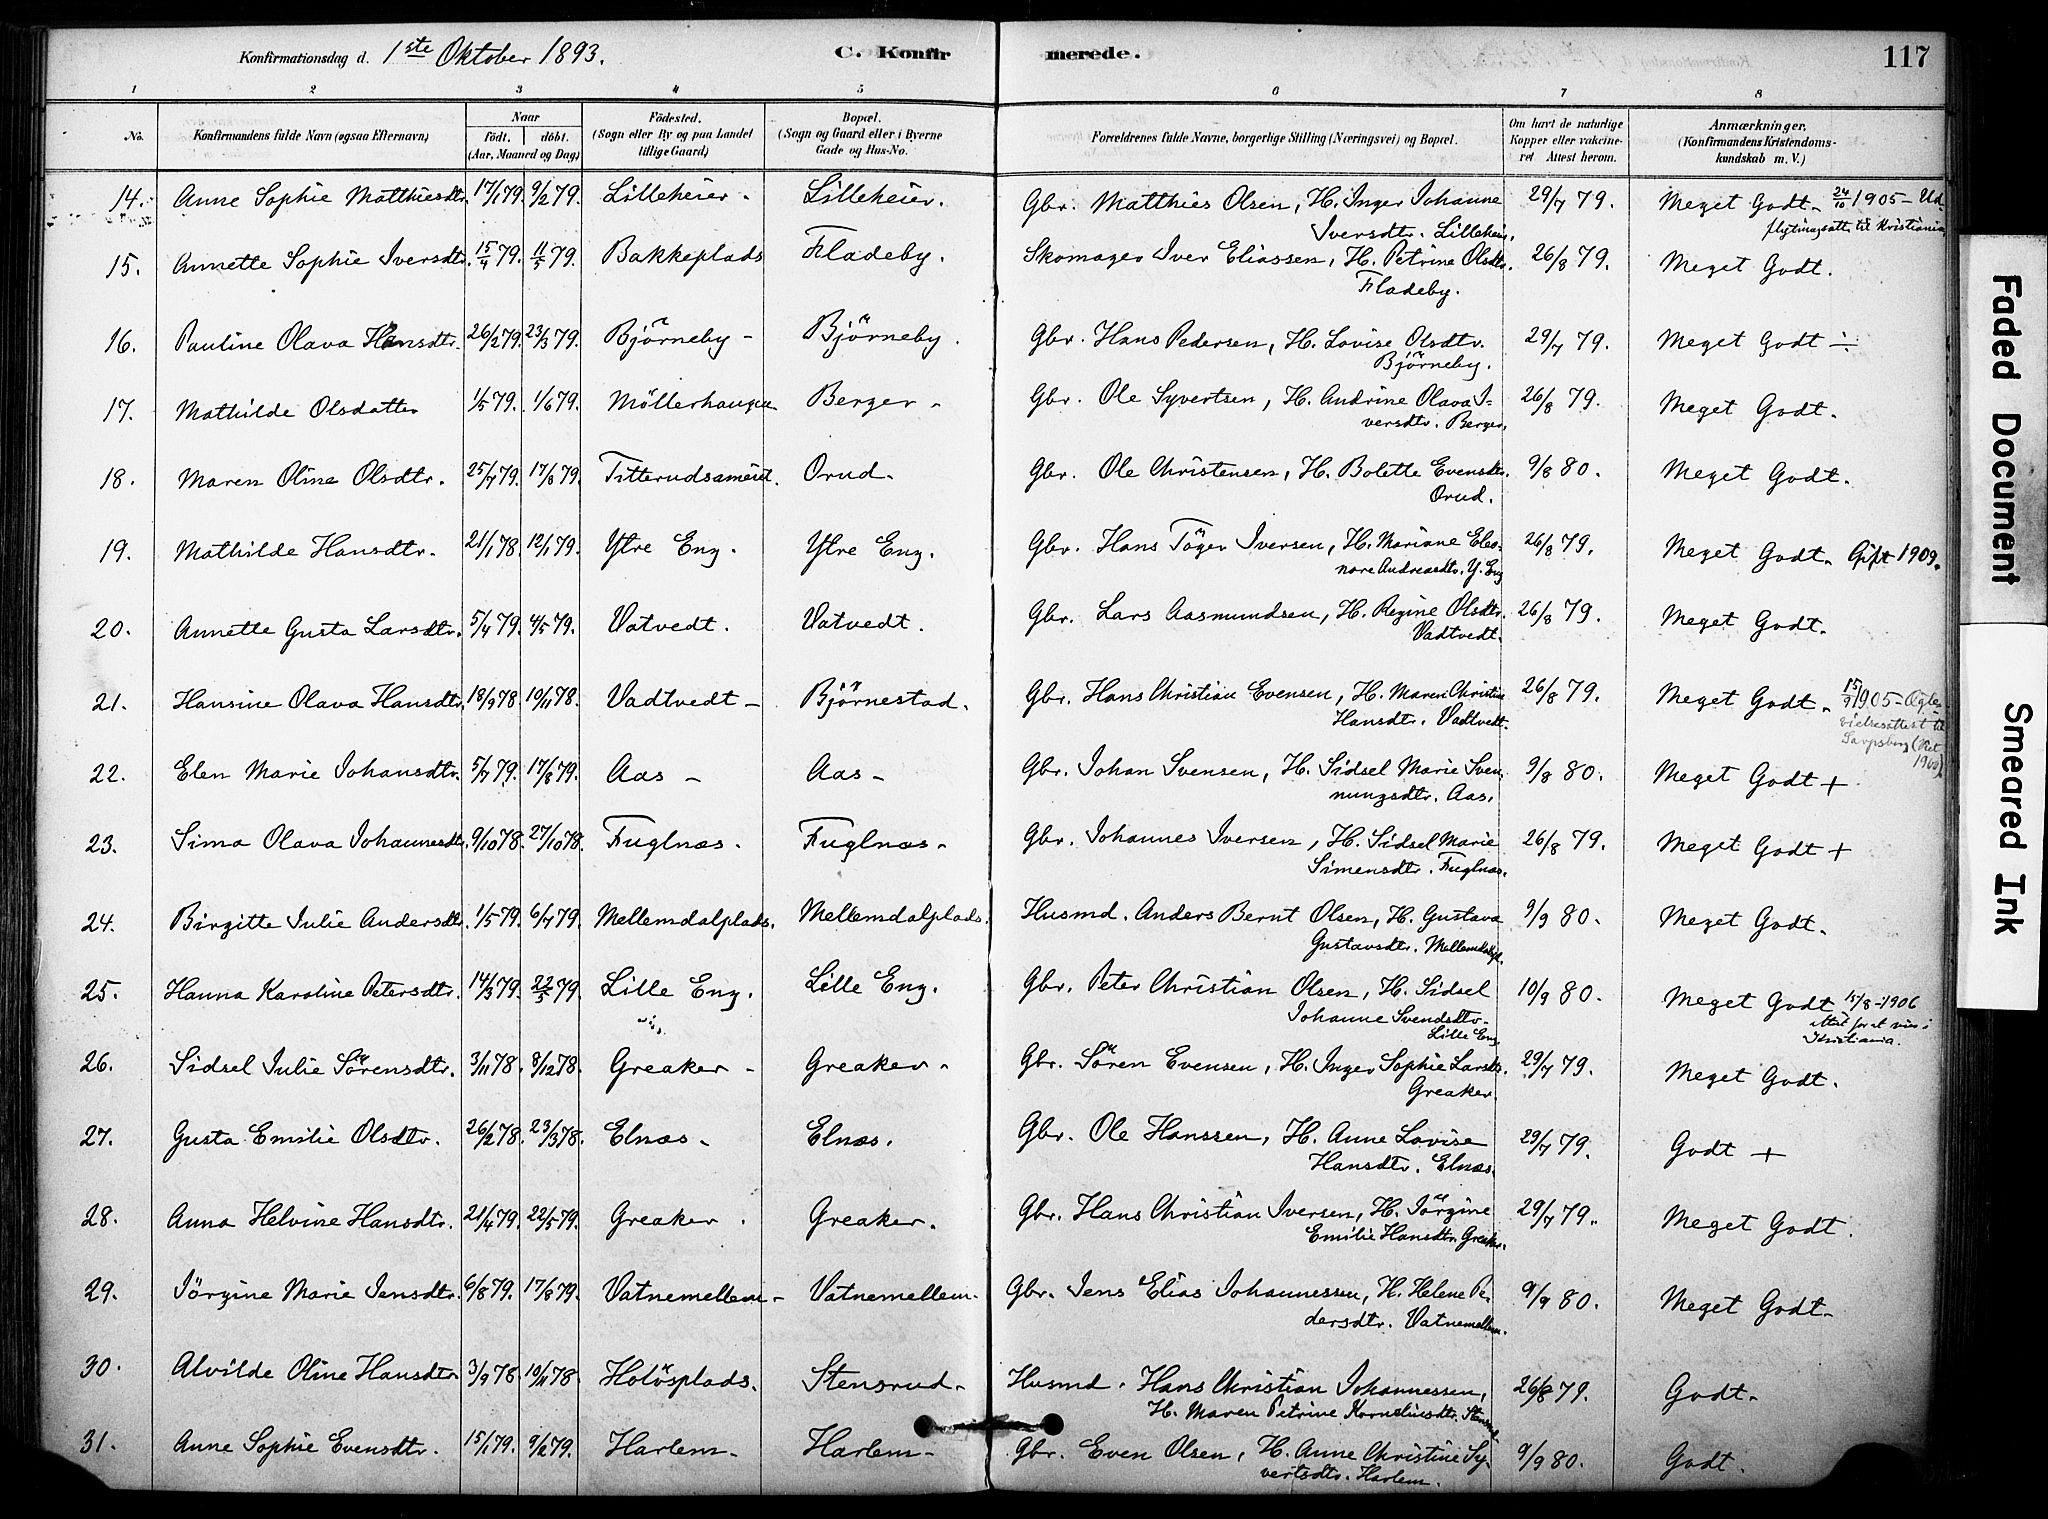 Konfirmationsdag d. 1ste Oktober 1893. C. Konfirmerede. 117
1 2 3 4 5 6 7 8
No. Konfirmandens fulde Navn (ogsaa Efternavn) Naar født, døbt. (Aar, Maaned og Dag) Fødested. (Sogn eller By og paa Landet tillige Gaard) Bopæl. (Sogn og Gaard eller i Byerne Gade og Hus-No. Forældrenes fulde Navne, borgerlige Stilling (Næringsvei) og Bopæl. Om havt de naturlige Kopper eller vakcineret Attest herom. Anmærkninger. (Konfirmandens Kristendomskundskab m. V.)
14. Anne Sophie Matthiesdtr. 17/1 79. 9/2 79. Lilleheier. Lilleheier. Gbr. Matthies Olsen, H. Inger Johanne 29/7 79. Meget Godt. 24/10 1905 - Ud-
Iversdtr. Lilleheier. flytningsatt. til Kristiania
15. Annette Sophie Iversdtr. 15/4 79. 11/5 79. Bakkeplads Fladeby. Skomager Iver Eliassen, H. Petrine Olsdtr. 26/8 79. Meget Godt.
Fladeby.
16. Pauline Olava Hansdtr. 26/2 79. 23/3 79. Björneby - Björneby. Gbr. Hans Pedersen, H. Lovise Olsdtr. 29/7 79. Meget Godt ÷
Björneby.
17. Mathilde Olsdatter 1/5 79. 1/6 79. Möllerhaugen Berger - Gbr. Ole Syvertsen, H. Andrine Olava I- 26/8 79. Meget Godt.
versdtr. Berger.
18. Maren Oline Olsdtr. 25/7 79. 17/8 79. Titterudsameiet. Orud. Gbr. Ole Christensen, H. Bolette Evensdtr. 9/8 80. Meget Godt.
Orud.
19. Mathilde Hansdtr. 21/1 78. 12/1 79. Ytre Eng. Ytre Eng. Gbr. Hans Töger Iversen, H. Mariane Eleo- 26/8 79. Meget Godt. Gift 1909.
nore Andreasdtr. Y. Eng
20. Annette Gusta Larsdtr. 5/4 79. 4/5 79. Vatvedt. Vatvedt. Gbr. Lars Aasmundsen, H. Regine Olsdtr. 26/8 79. Meget Godt.
Vadtvedt.
21. Hansine Olava Hansdtr. 18/9 78. 10/11 78. Vadtvedt - Björnestad. Gbr. Hans Christian Evensen, H. Maren Christine 26/8 79. Meget Godt. 15/9 1905 - Ægte-
Hansdt. Vadtvedt. vielsesattest til
Sarpsborg
22. Elen Marie Johansdtr. 5/7 79. 17/8 79. Aas - Aas - Gbr. Johan Svensen, H. Sidsel Marie Sven- 9/8 80. Meget Godt +
nungsdtr. Aas.
23. Sima Olava Johannesdtr. 9/10 78. 27/10 78. Fuglnæs. Fuglnæs. Gbr. Johannes Iversen, H. Sidsel Marie 26/8 79. Meget Godt +
Simensdtr. Fuglnæs.
24. Birgitte Julie Andersdtr. 1/5 79. 6/7 79. Mellemdalplads. Mellemdalplads. Husmd. Anders Bernt Olsen, H. Gustava 9/9 80. Meget Godt.
Gustavsdtr. Mellemdalpl.
25. Hanna Karoline Petersdtr. 14/3 79. 22/5 79. Lille Eng. Lille Eng. Gbr. Peter Christian Olsen, H. Sidsel 10/9 80. Meget Godt 15/8 - 1906
Johanne Svendsdtr. Attest for at vies i
Lille Eng. Kristiania.
26. Sidsel Julie Sörensdtr. 3/11 78. 8/12 78. Greaker - Greaker. Gbr. Sören Evensen, H. Inger Sophie Larsdtr. 29/7 79. Meget Godt.
Greaker.
27. Gusta Emilie Olsdtr. 26/2 78. 23/3 78. Elnæs. Elnæs. Gbr. Ole Hanssen, H. Anne Lovise 29/7 79. Godt +
Hansdtr. Elnæs.
28. Anna Helvine Hansdtr. 21/4 79. 22/5 79. Greaker. Greaker. Gbr. Hans Christian Iversen, H. Jörgine 29/7 79. Meget Godt.
Emilie Hansdtr. Greaker.
29. Jörgine Marie Jensdtr. 6/8 79. 17/8 79. Vatnemellem - Vatnemellem. Gbr. Jens Elias Johannessen, H. Helene Pe- 9/9 80. Meget Godt.
dersdtr. Vatnemellem.
30. Alvilde Oline Hansdtr. 3/9 78 10/11 78. Holösplads. Stensrud. Husmd. Hans Christian Johannessen, 26/8 79. Godt.
H. Maren Petrine Korneliusdtr. Stensrud
31. Anne Sophie Evensdtr. 15/1 79. 9/2 79. Harlem. Harlem - Gbr. Even Olsen, H. Anne Christine Sy- 9/9 80. Godt.
vertsdtr. Harlem.
Faded Document
Smeared Ink